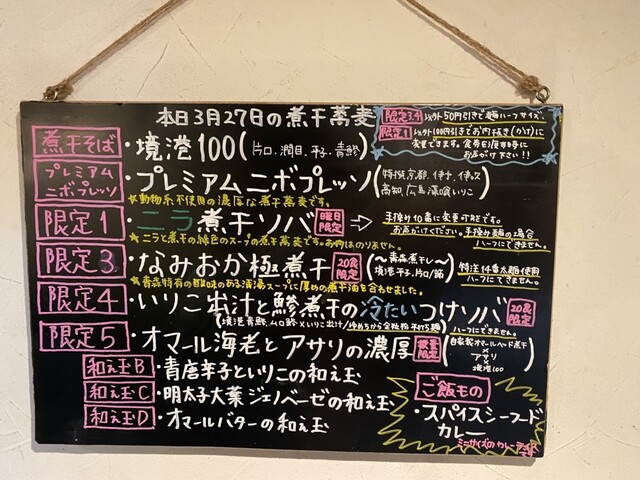 本日3月27日の煮干蕎麦
限定3.4 以外50円引きで麺ハーフサイズ、
限定1 以外100円引きでお肉抜き(かけ)に
変更できます。食券を渡す時に
お声がけ下さい!!
煮干そば ・境港100(片口、潤目、平子、青鯵)
プレミアムニボプレッソ ・プレミアムニボプレッソ(特撰京都、伊予、伊吹
高知、広島、瀬喰いりこ)
★動物系不使用の濃厚な煮干蕎麦です。
限定1 ・ニラ煮干ソバ 曜日限定 ⇒ 手揉み10番に変更可能です。
お声がけください。手揉み麺の場合
ハーフにできません。
★ニラと煮干の緑色のスープの煮干蕎麦です。お肉はのりません。
限定3 ・なみおか極煮干 20食限定 (〜青森煮干し〜
境港平子、片口/鯵) 特注14番太麺使用
ハーフにできません。
★青森特有の酸味のある清湯スープに厚めの煮干油を合わせました。
限定4 ・いりこ出汁と鯵煮干の冷たいつけソバ 20食限定
(境港青鯵、ムロ鯵×いりこ出汁/ゆめちから全粒粉平打ち麺) ハーフにできません。
限定5 ・オマール海老とアサリの濃厚 数量限定 (自家製オマールヘッド煮干
×
アサリ
×
境港100)
和え玉B ・青唐辛子といりこの和え玉
和え玉C ・明太子大葉ジェノベーゼの和え玉
和え玉D ・オマールバターの和え玉
ご飯もの
・スパイスシーフード
カレー
ミニサイズのカレーライスです